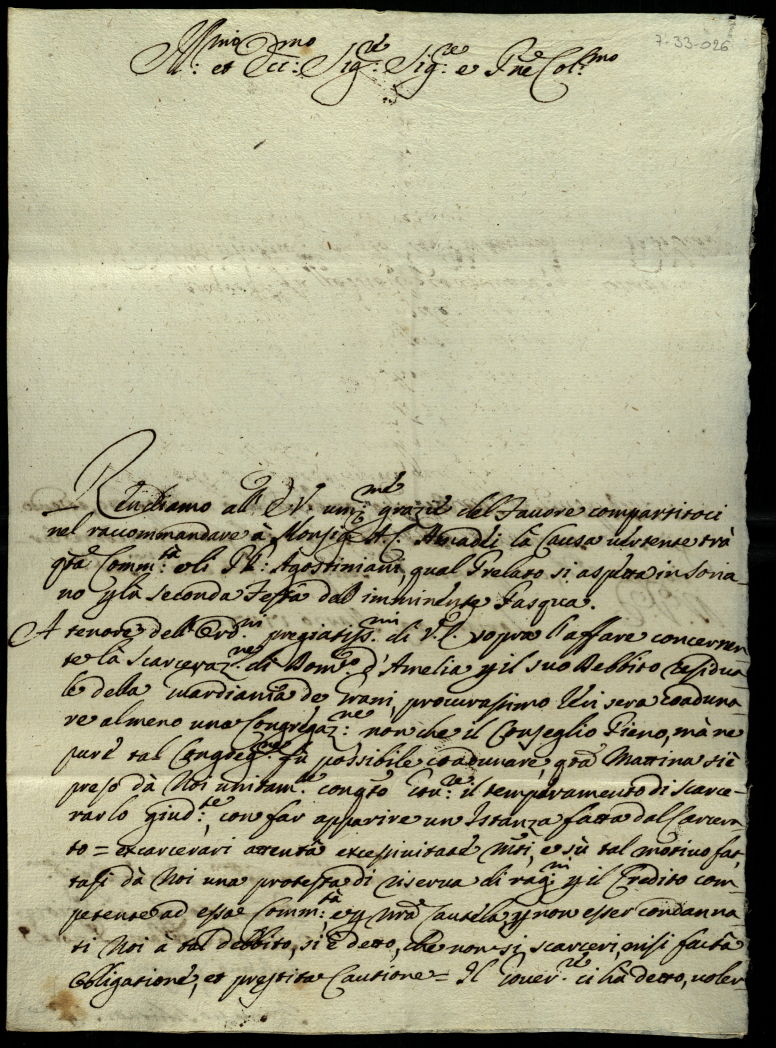 7-33-026
Ill:mo et Ecc:mo Sig:re Sig:re e Pne Col:mo
Rendiamo all' E V. um:me grazie del Favore compartitoci
nel raccommandare à Monsig:re Amadei la Causa vertente trà
q̃ta Comm:tà e li PP: Agostiniani, qual Prelato si aspetta in Soria
no p la seconda Festa dell' imminente Pasqua.
A tenore dell' Ord:ni pregiatiss:mi di V. E. sopra l'affare concernen
te la scarceraz:ne di Dom:co d'Amelia p il suo Debbito residua
le della Guardiania de Grani, procurassimo Ieri sera coaduna
re almeno una Congregaz:ne non che il Conseglio Pieno, mà ne
pure tal Congreg:ne fù possibile coadunare, q̃ta Mattina si è
preso dà Noi unitam:te con q̃to Gov:re il temperamento di scarce
rarlo giud:te, con far apparire un Istanza fatta dal Carcera
to = excarcerari attenta excessivitate , e sù tal motivo fat
tasi dà Noi una protesta di riserva di rag:ni p il Credito com
petente ad essa Comm:tà e p nr̃a Cautela, p non esser condanna
ti Noi à tal debbito, si è detto, che non si scarceri, nisi facta
obligatione, et prestita Cautione = Il Gover:re ci hà detto, voler